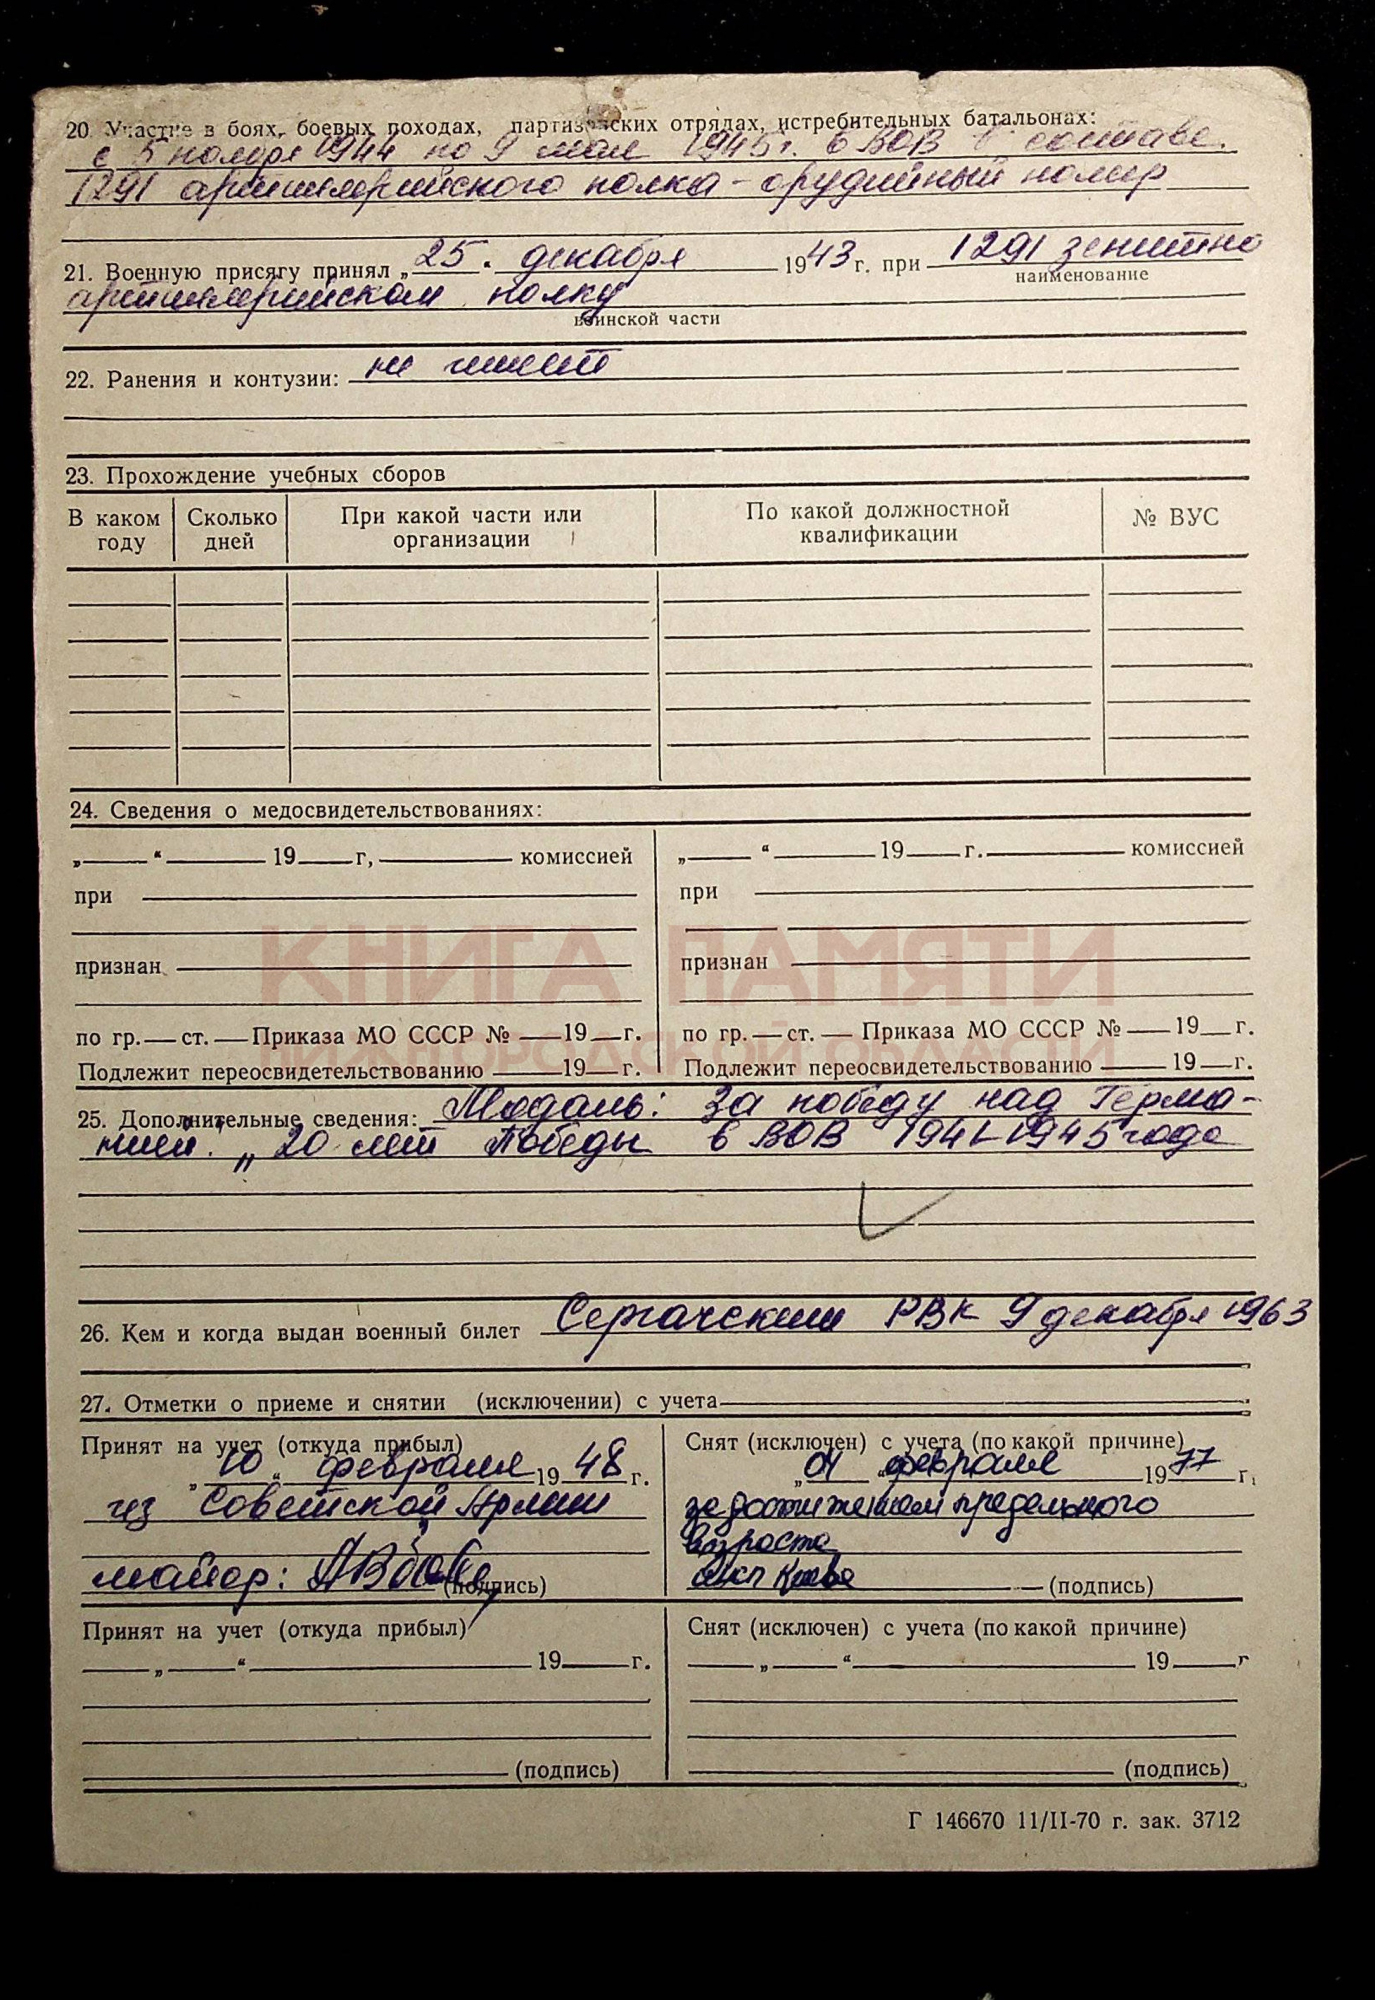 20. Участие в боях, боевых походах, партизанских отрядах, истребительных батальонах:
с 5 ноября 1944 по 9 мая 1945 г. в ВОВ в составе
1291 артиллерийского полка - орудийный номер
21. Военную присягу принял „25“ декабря 1943 г. при 1291 зенитно
наименование
артиллерийском полку
воинской части
22. Ранения и контузии: не имеет
23. Прохождение учебных сборов
В каком году Сколько дней При какой части или организации По какой должностной квалификации № ВУС
24. Сведения о медосвидетельствованиях:
„ “ 19 г, комиссией „ “ 19 г. комиссией
при при
КНИГА ПАМЯТИ
признан признан
по гр. ст. Приказа МО СССР № 19 г. по гр. ст. Приказа МО СССР № 19 г.
НИЖЕГОРОДСКОЙ ОБЛАСТИ
Подлежит переосвидетельствованию 19 г. Подлежит переосвидетельствованию 19 г.
25. Дополнительные сведения: Медаль: За победу над Герма-
нией. „20 лет Победы в ВОВ 1941-1945 года
26. Кем и когда выдан военный билет Сергачским РВК 9 декабря 1963
27. Отметки о приеме и снятии (исключении) с учета
Принят на учет (откуда прибыл)
„10“ февраля 1948 г.
из Советской Армии
майор: (подпись)
Снят (исключен) с учета (по какой причине)
„01“ февраля 1977 г.
за достижением предельного
возраста
(подпись)
Принят на учет (откуда прибыл) Снят (исключен) с учета (по какой причине)
„ “ 19 г. „ “ 19 г
(подпись) (подпись)
Г 146670 11/II-70 г. зак. 3712